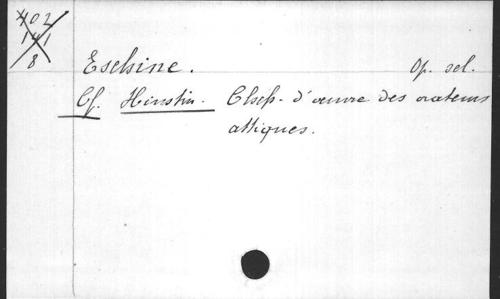 402
141
8
Eschine. Op. sel.
Cf. Hinstin. Chefs-d'œuvre des orateurs
attiques.